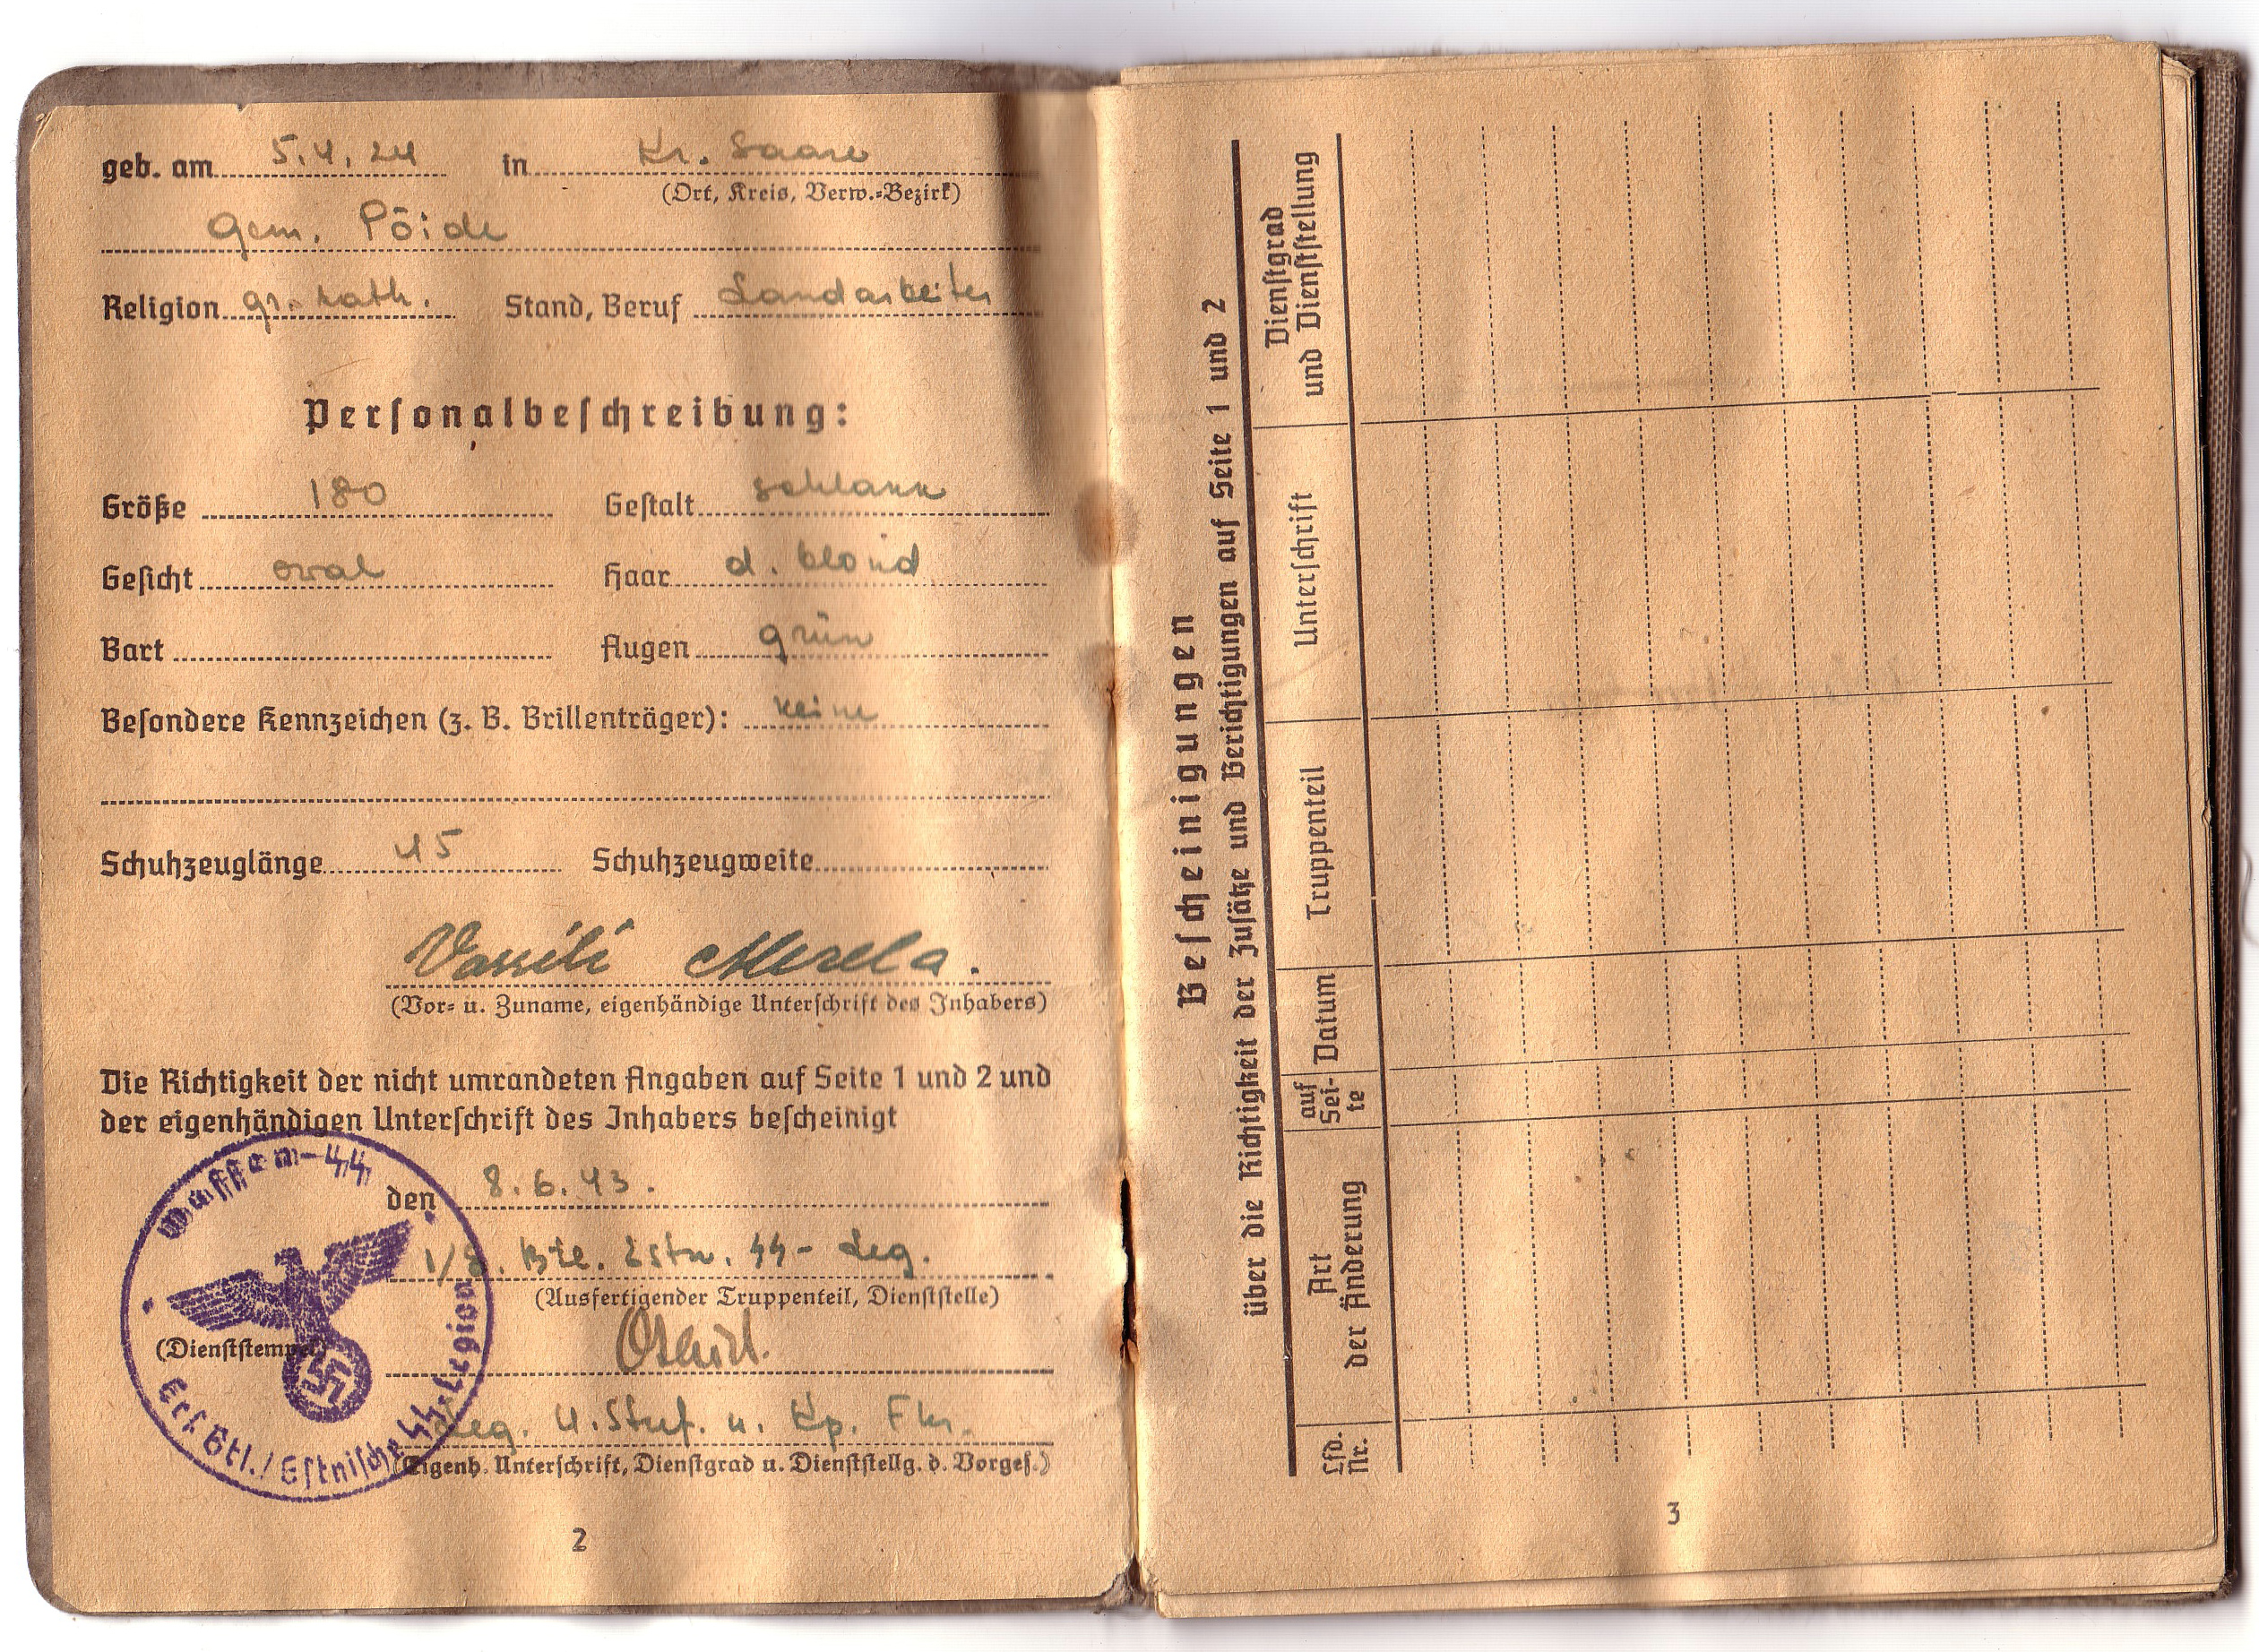 geb. am 5.4.24 in Kr. Saare
(Ort, Kreis, Verw.-Bezirk)
Gem. Pöide
Religion gr. kath. Stand, Beruf Landarbeiter
Personalbeschreibung:
Größe 180 Gestalt schlank
Gesicht oval Haar d. blond
Bart Augen grün
Besondere Kennzeichen (z. B. Brillenträger): keine
Schuhzeuglänge 45 Schuhzeugweite
Vassili Merela.
(Vor- u. Zuname, eigenhändige Unterschrift des Inhabers)
Die Richtigkeit der nicht umrandeten Angaben auf Seite 1 und 2 und
der eigenhändigen Unterschrift des Inhabers bescheinigt
Waffen-SS
Ers. Btl. / Estnische SS-Legion
den 8.6.43.
Btl. Estn. SS-Leg.
(Ausfertigender Truppenteil, Dienststelle)
(Dienststempel)
Leg. U.Stuf. u. Kp. Fhr.
(Eigenh. Unterschrift, Dienstgrad u. Dienststellg. d. Vorges.)
2
Bescheinigungen
über die Richtigkeit der Zusätze und Berichtigungen auf Seite 1 und 2
Lfd. Nr.
Art der Änderung
auf Sei-te
Datum
Truppenteil
Unterschrift
Dienstgrad und Dienststellung
3